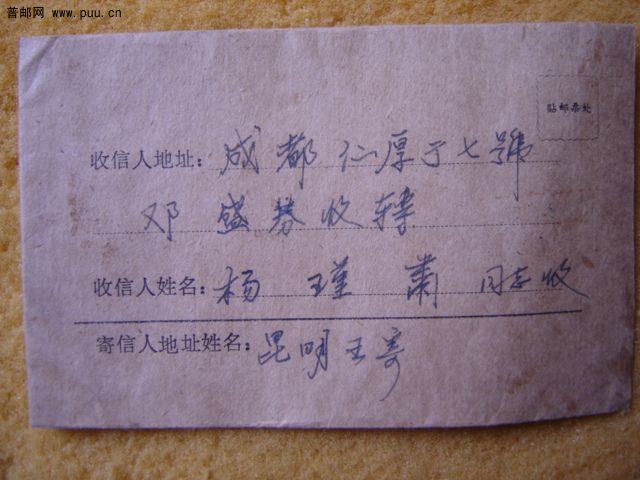 普邮网 www.puu.cn
贴邮票处
收信人地址：成都仁厚于七號
邓盛芬收转
收信人姓名：杨瑾萧同志收
寄信人地址姓名：昆明王寄